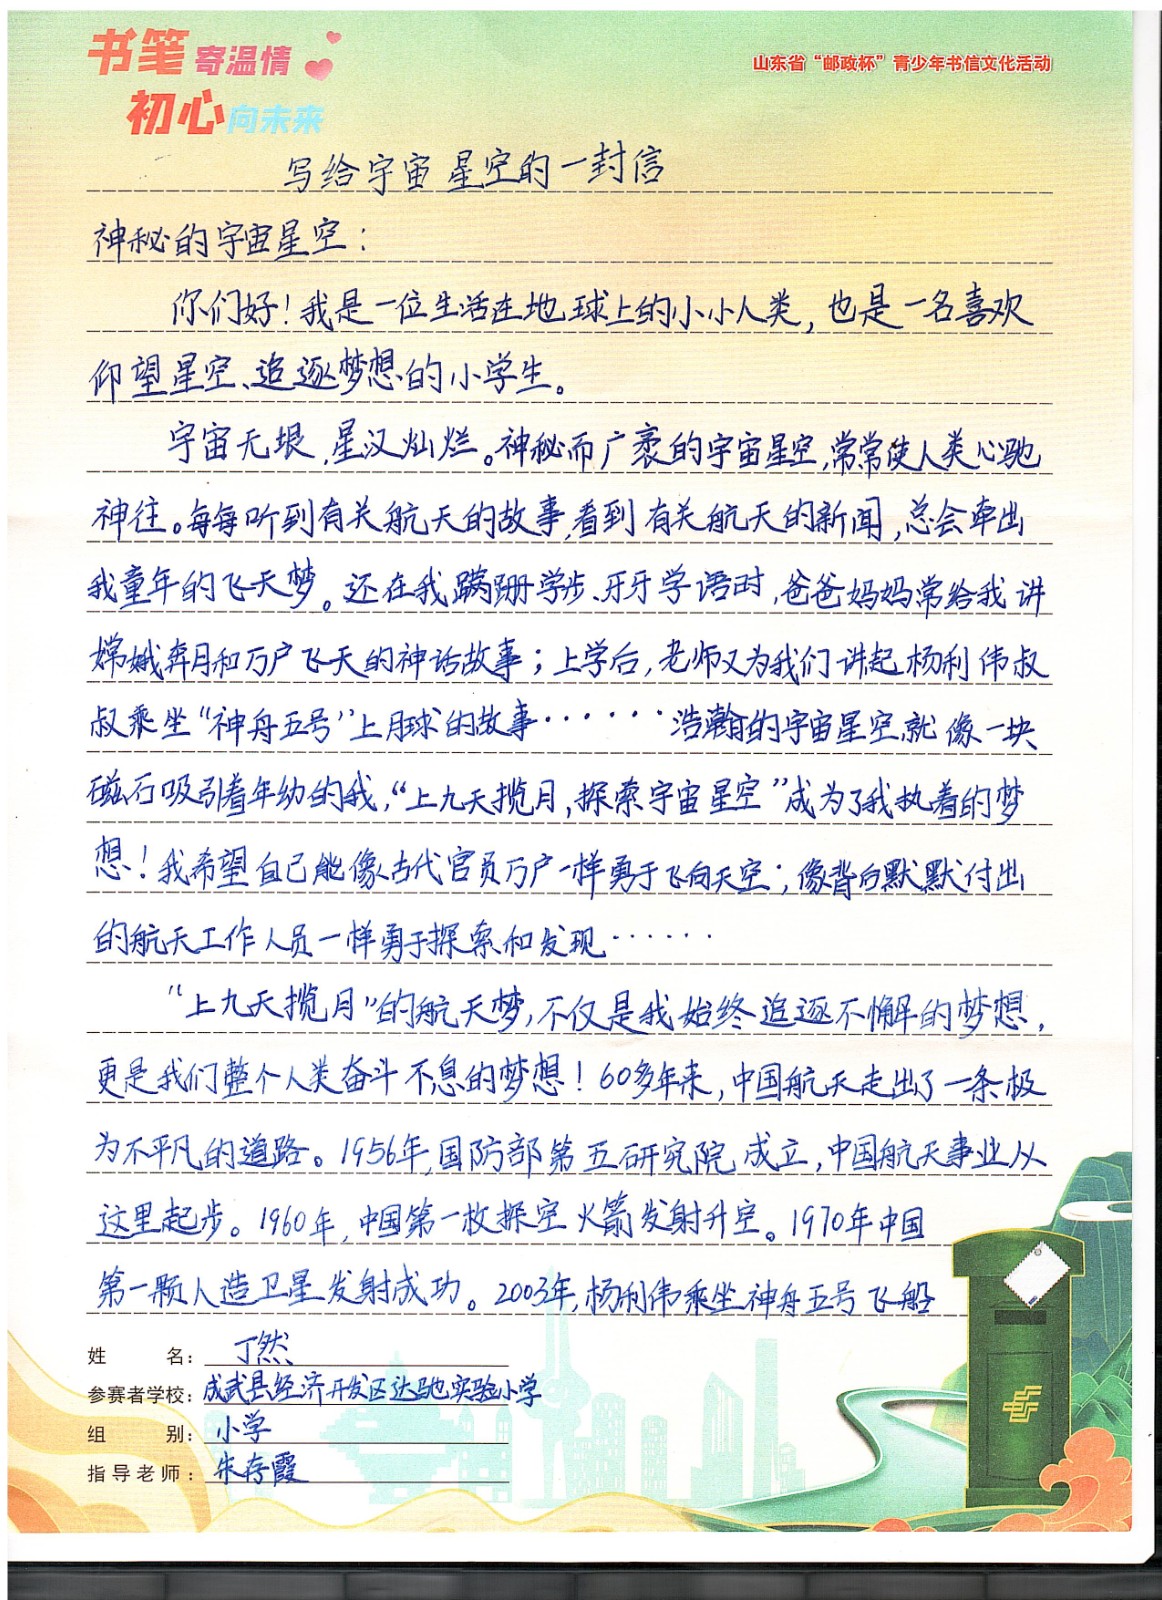 书笔寄温情
初心向未来
山东省“邮政杯”青少年书信文化活动
写给宇宙星空的一封信
神秘的宇宙星空：
你们好！我是一位生活在地球上的小小人类，也是一名喜欢
仰望星空、追逐梦想的小学生。
宇宙无垠，星汉灿烂。神秘而广袤的宇宙星空，常常使人类心驰
神往。每每听到有关航天的故事，看到有关航天的新闻，总会牵出
我童年的飞天梦。还在我蹒跚学步、牙牙学语时，爸爸妈妈常给我讲
嫦娥奔月和万户飞天的神话故事；上学后，老师又为我们讲起杨利伟叔
叔乘坐“神舟五号”上月球的故事······浩瀚的宇宙星空就像一块
磁石吸引着年幼的我，“上九天揽月，探索宇宙星空”成为了我执着的梦
想！我希望自己能像古代官员万户一样勇于飞向天空；像背后默默付出
的航天工作人员一样勇于探索和发现······
“上九天揽月”的航天梦，不仅是我始终追逐不懈的梦想，
更是我们整个人类奋斗不息的梦想！60多年来，中国航天走出了一条极
为不平凡的道路。1956年，国防部第五研究院成立，中国航天事业从
这里起步。1960年，中国第一枚探空火箭发射升空。1970年中国
第一颗人造卫星发射成功。2003年，杨利伟乘坐神舟五号飞船
姓名：丁然
参赛者学校：成武县经济开发区达驰实验小学
组别：小学
指导老师：朱存霞